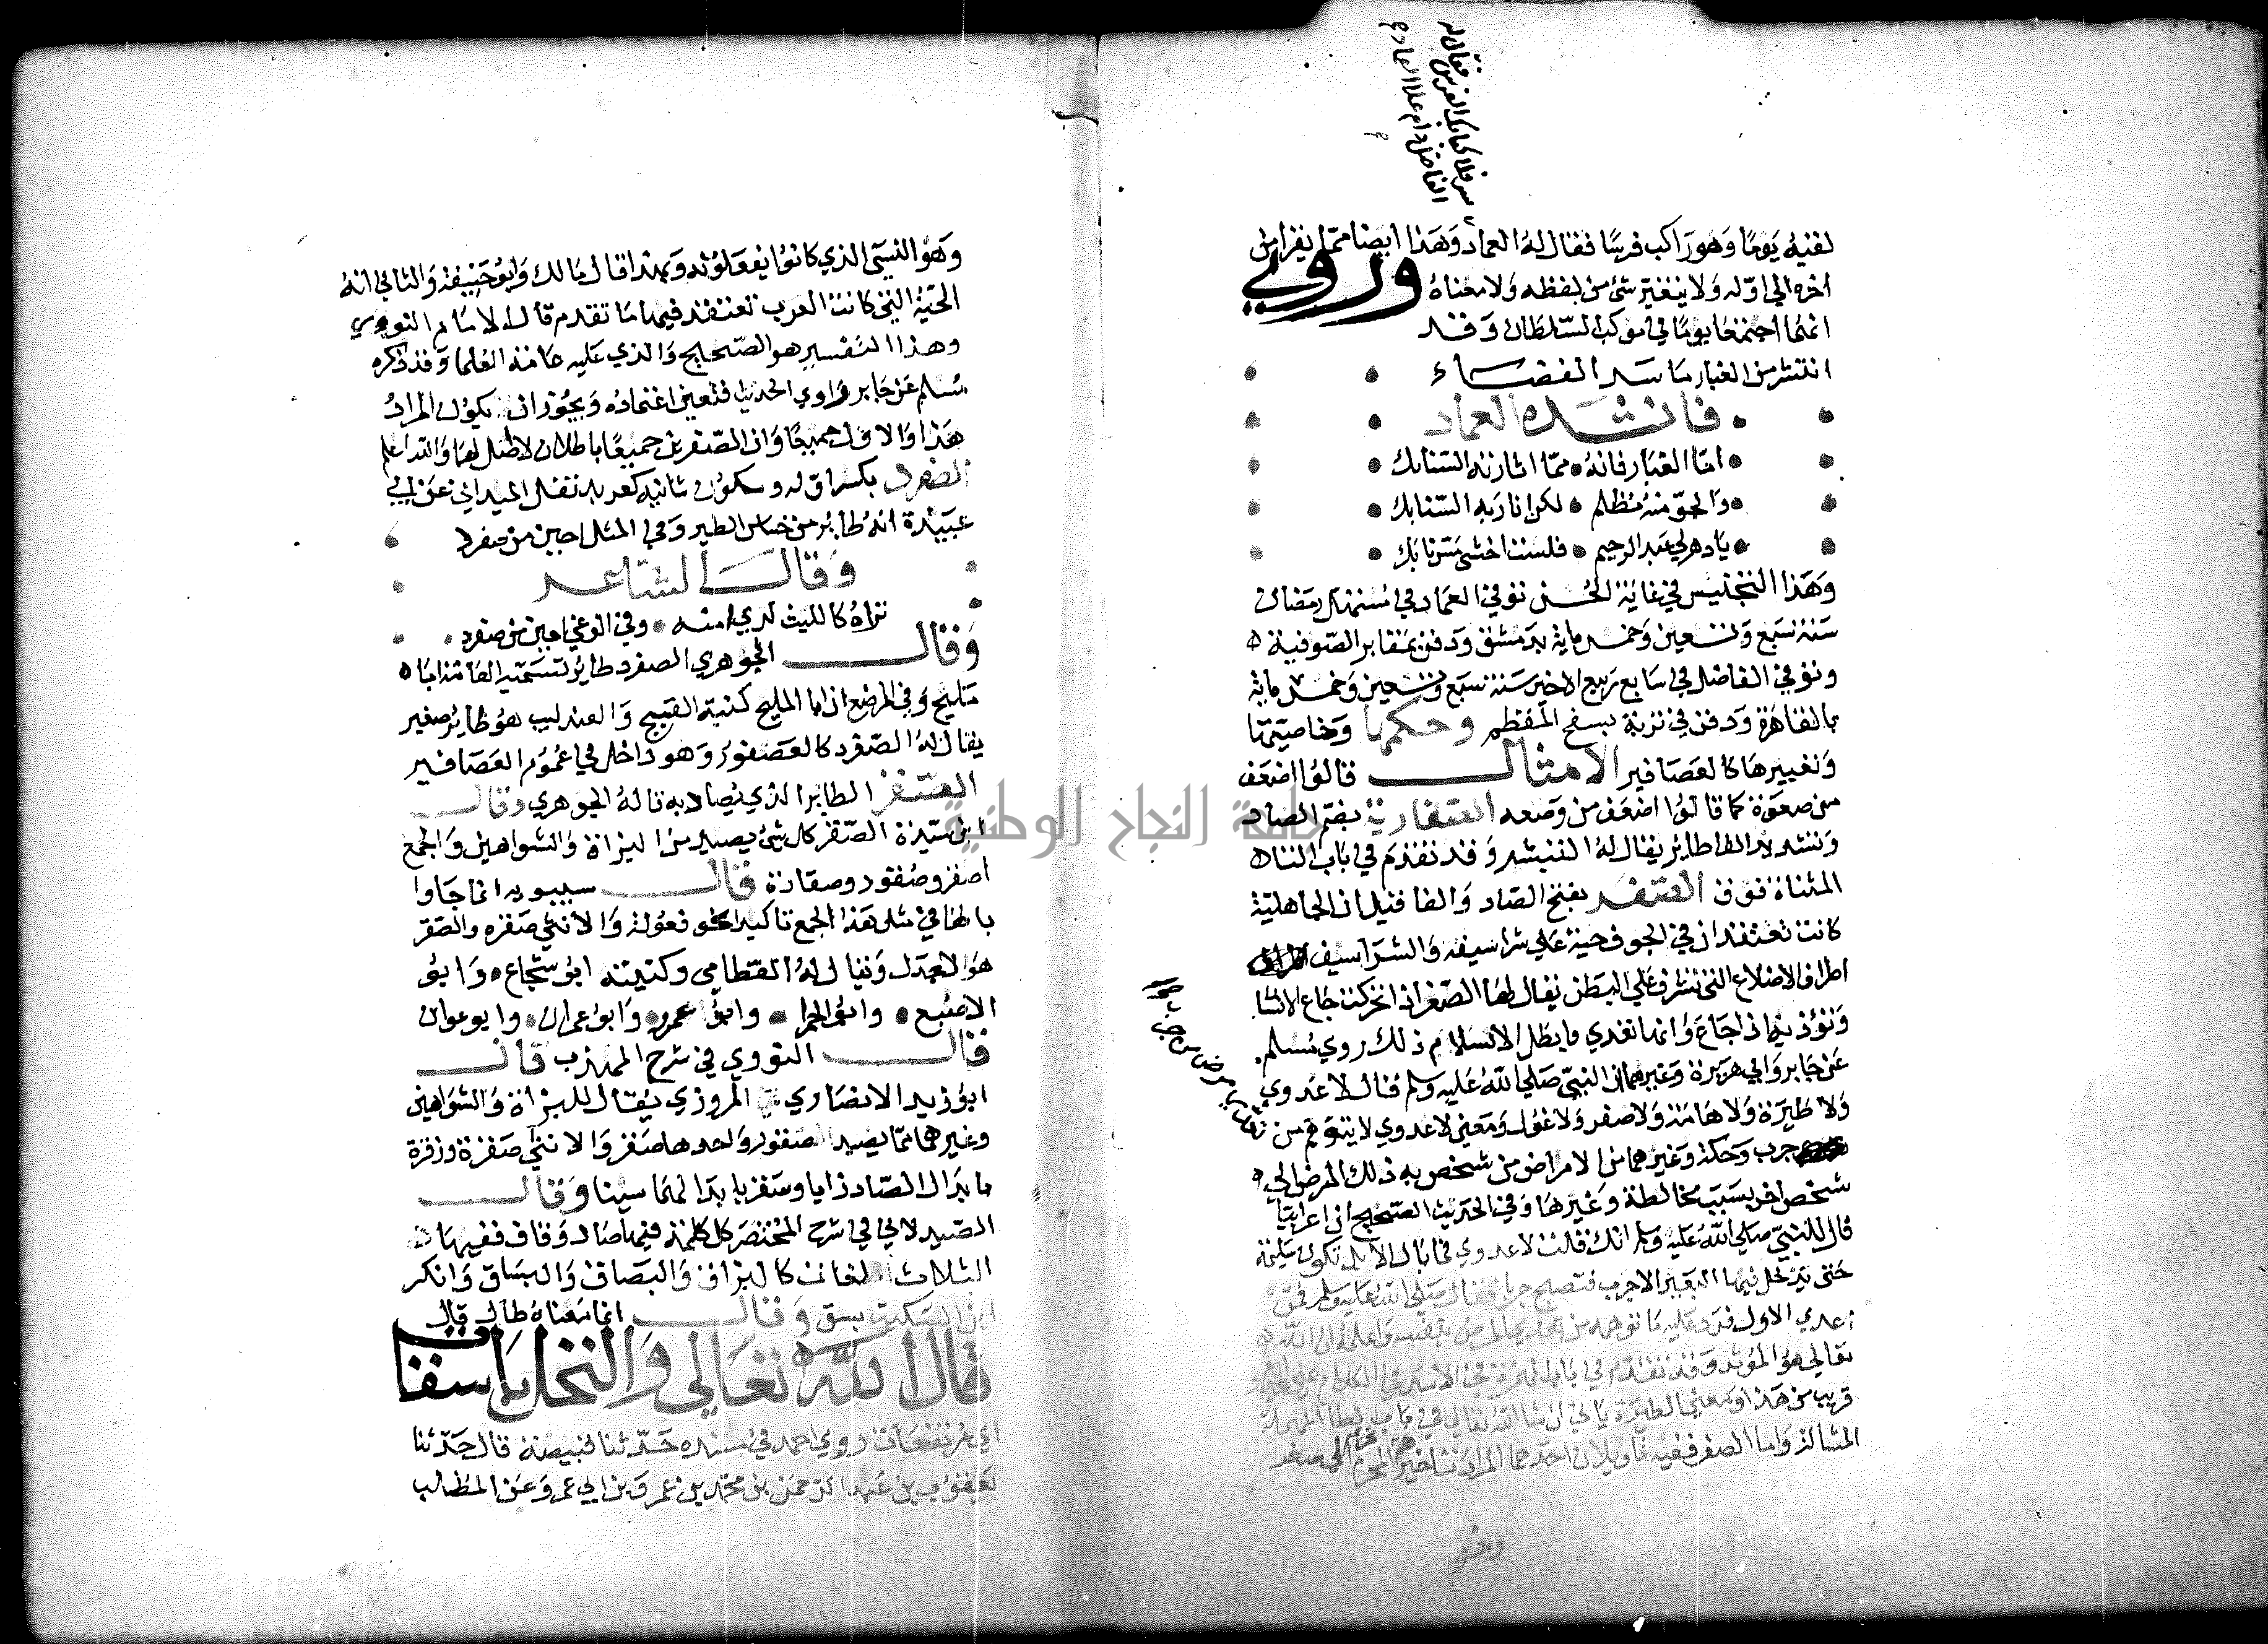 سر فلا كبا بك الفرس فقال له
الفاضل دام علا العماد
لقيه يوما وهو راكب فرسا فقال له العماد وهذا ايضا مما يقرا من
اخره الي اوله ولا يتغير شئ من لفظه ولا معناه وروي
انهما اجتمعا يوما في موكب السلطان وقد
انتشر من الغبار ما سد الفضاء
فانشده العماد
اما الغبار فانه مما اثارته السنابك
والجو منه مظلم لكن انار به السنابك
يا دهر لي عبد الرحيم فلست اخشي مس نابك
وهذا التجنيس في غاية الحسن توفي العماد في مستهل رمضان
سنة سبع وتسعين وخمسماية بدمشق ودفن بمقابر الصوفية ه
وتوفي الفاضل في سابع ربيع الاخير سنة سبع وتسعين وخمسماية
بالقاهرة ودفن في تربة بسفح المقطم وحكمها وخاصيتها
وتعبيرها كالعصافير الامثال قالوا اضعف
من صعوة كما قالوا اضعف من وصعه الصفارية بضم الصاد
وتشديد الفا طائر يقال له التبشر وقد تقدم في باب التاء
المثناة فوق الصفر بفتح الصاد والفا قيل ان الجاهلية
كانت تعتقد ان في الجوف حية علي شراسيفه والشراسيف
اطراف الاضلاع التي تشرف علي البطن يقال لها الصفر اذا تحركت جاع الانسا
وتؤذيه اذا جاع وانها تعدي فابطل الاسلام ذلك روي مسلم
عن جابر وابي هريرة وغيرهما ان النبي صلي الله عليه وسلم قال لا عدوي
ولا طيرة ولا هامة ولا صفر ولا غول ومعني لا عدوي لا يتوهم من
جرب وحكة وغيرهما من الامراض من شخص به ذلك المرض الي
شخص اخر بسبب مخالطة وغيرها وفي الحديث الصحيح ان اعرابيا
قال للنبي صلي الله عليه وسلم انك قلت لا عدوي فما بال الابل تكون سليمة
حتي يدخل فيها البعير الاجرب فتصبح جربا فقال صلي الله عليه وسلم فمن
اعدي الاول فرد عليه ما توهمه من تعدي المرض بنفسه واعلمه ان الله
تعالي هو الموثر وقد تقدم في باب الهمزة في الاسد في الكلام علي
قريب من هذا ومعني الطيرة ياتي ان شا الله تعالي في باب الطا المهملة
المشالة واما الصفر ففيه تاويلان احدهما المراد تاخيرهم تحريم المحرم الي صفر
وهو
وهو النسي الذي كانوا يفعلونه وبهذا قال مالك وابو حنيفة والثاني انه
الحية التي كانت العرب تعتقد فيها ما تقدم قال الامام النووي
وهذا التفسير هو الصحيح والذي عليه عامة العلما وقد ذكره
مسلم عن جابر راوي الحديث فتعين اعتماده ويجوز ان يكون المراد
هذا والاول جميعا وان الصفرين جميعا باطلان لا اصل لهما والله اعلم
الصفرد بكسر اوله وسكون ثانيه كعربد نقل الميداني عن ابي
عبيدة انه طائر من خساس الطير وفي المثل اجبن من صفرد
وقال الشاعر
تراه كالليث لدي امنه وفي الوغي اجبن من صفرد
وقال الجوهري الصفرد طاير تسميه العامة ابا
مليح وفي المرصع ان ابا المليح كنية القبج والعندليب هو طاير صغير
يقال له الصفرد كالعصفور وهو داخل في عموم العصافير
الصقر الطاير الذي يصاد به قاله الجوهري وقال
ابن سيدة الصقر كل شئ يصيد من البزاة والشواهين والجمع
اصقر وصقور وصقارة قال سيبويه انما جاوا
بالها في مثل هذا الجمع تاكيدا نحو فعولة والانثي صقره والصقر
هو الاجدل ويقال له القطامي وكنيته ابو شجاع وابو
الاصبع وابو الحمرا وابو عمرو وابو عمران وابو عوان
قال النووي في شرح المهذب قال
ابو زيد الانصاري المروزي يقال للبزاة والشواهين
وغيرهما مما يصيد الصقور واحدها صقر والانثي صقرة وزقرة
بابدال الصاد زايا وسقر بابدالها سينا وقال
الصيدلاني في شرح المختصر كل كلمة فيها صاد وقاف ففيها
الثلاث لغات كالبزاق والبصاق والبساق وانكر
ابن السكيت بسق وقال انما معناه طال قال
قال الله تعالي والنخل باسقات
اي مرتفعات روي احمد في مسنده حدثنا قبيصة قال حدثنا
يعقوب بن عبد الرحمن بن محمد بن عمرو بن ابي عمرو عن المطلب
جامعة النجاح الوطنية